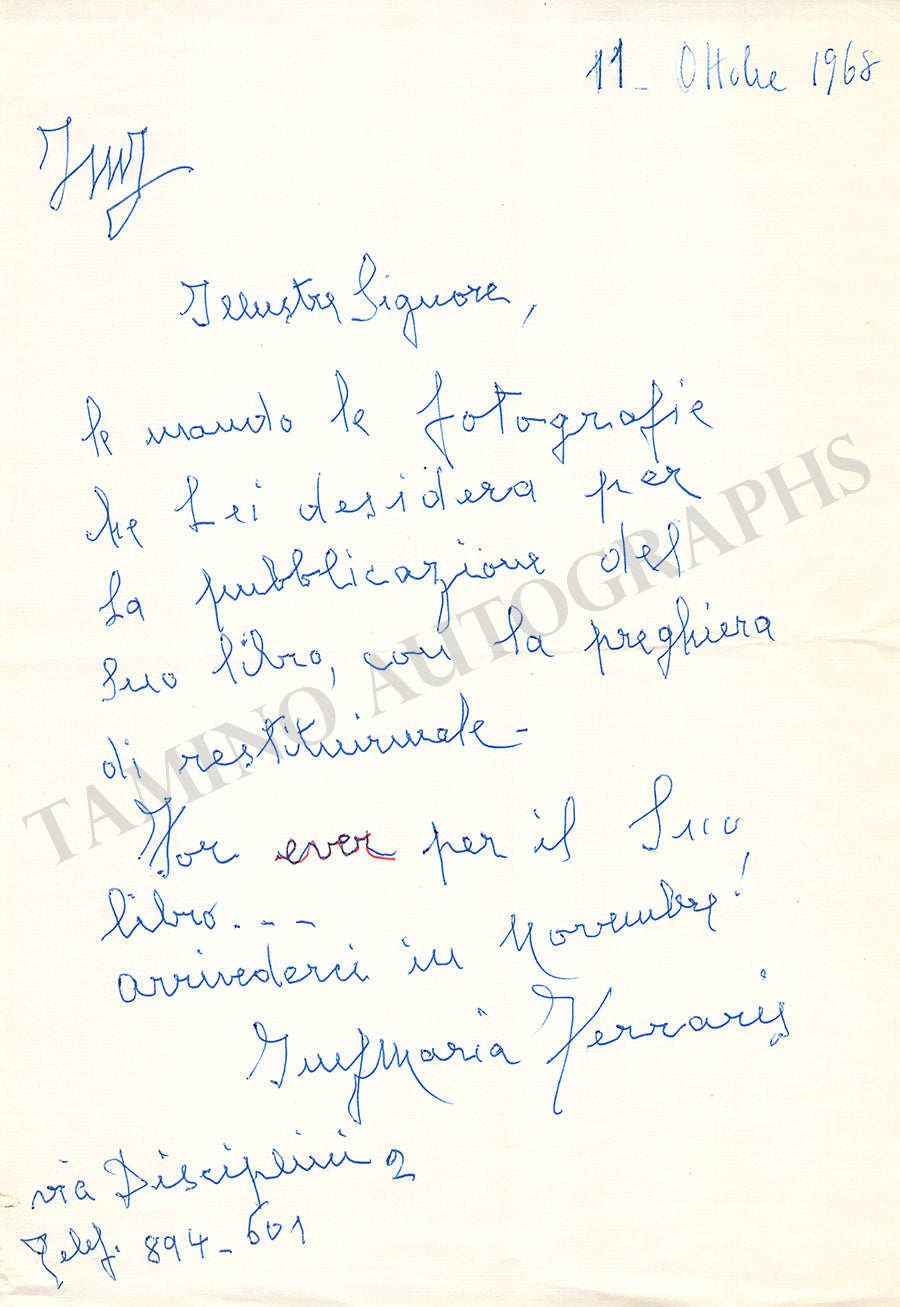 11 - Ottobre 1968
Illustre Signore,
le mando le fotografie
che Lei desidera per
la pubblicazione del
Suo libro, con la preghiera
di restituirmele -
For ever per il Suo
libro - - -
arrivederci in Novembre!
Ines Maria Ferraris
via Disciplini 2
Telef. 894 - 601
TAMINO AUTOGRAPHS